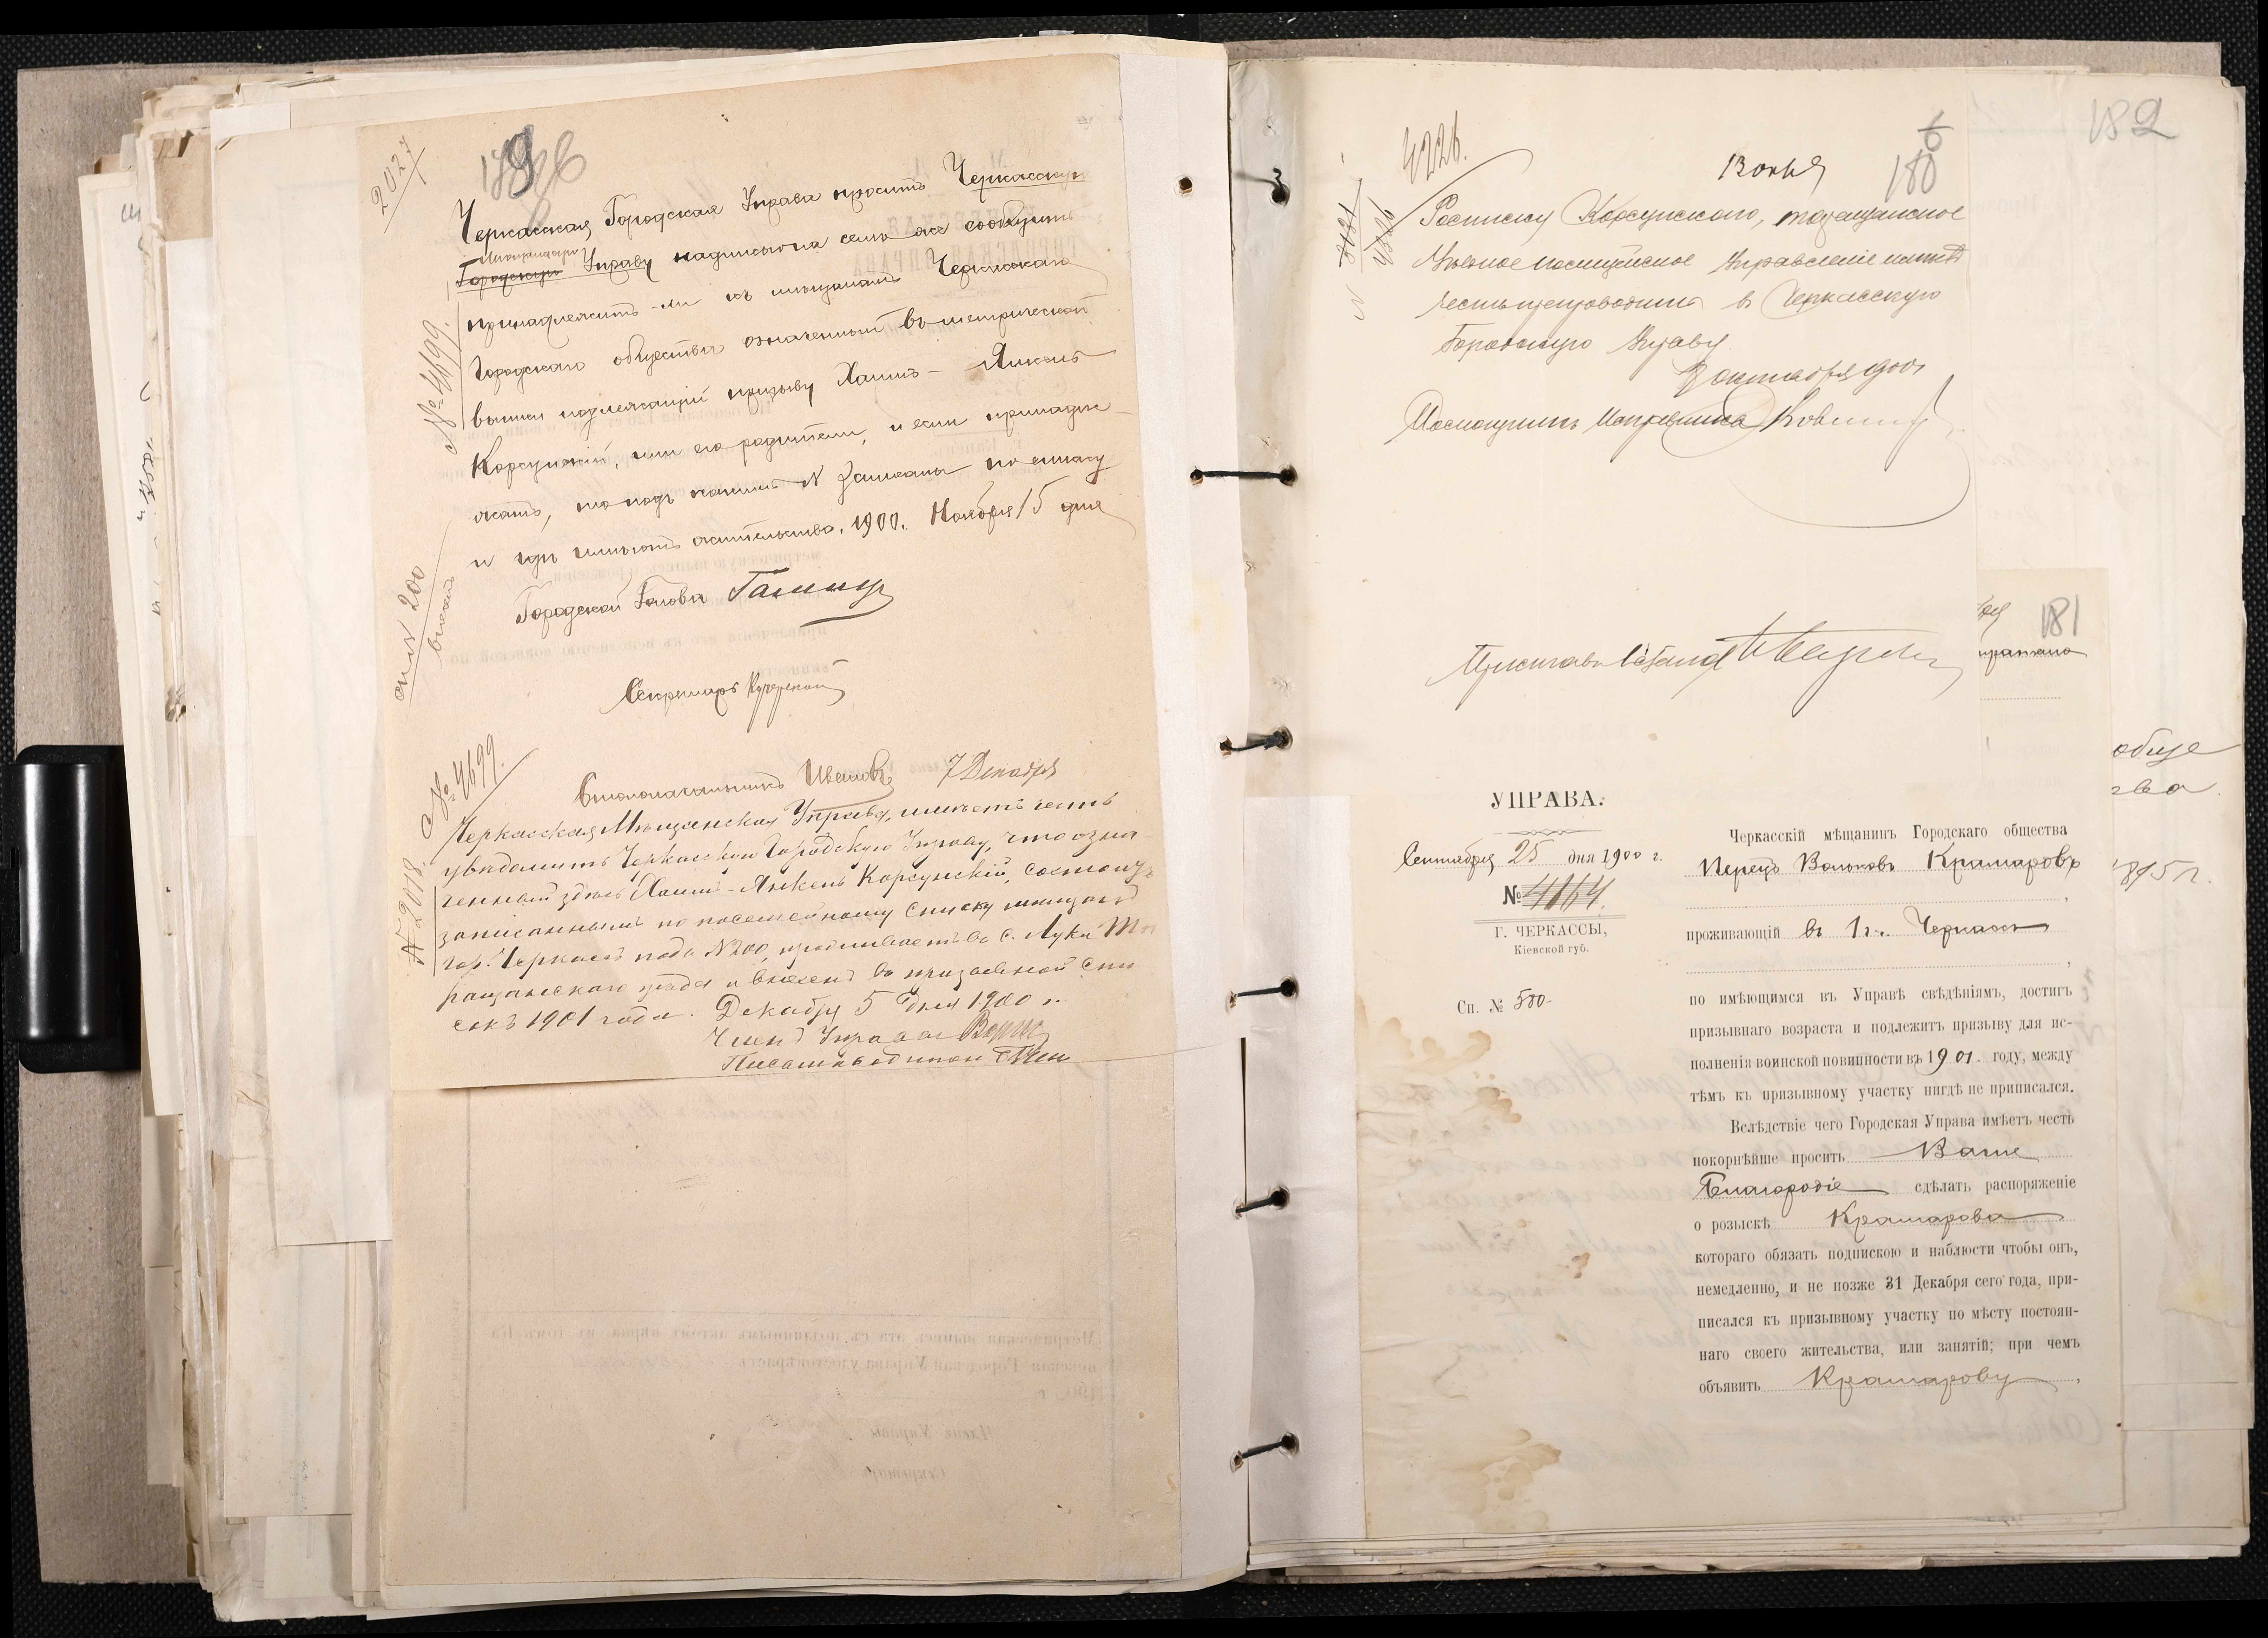 2027
Черкасская Городская Управа проситъ Черкасскую
Мѣщанскую
Городскую Управу надписью на семъ же сообщить
принадлежитъ-ли къ мѣщанамъ Черкасскаго
Городскаго общества означенный въ метрической
выписи подлежащій призыву Хаимъ-Янкель
Корсунскій, или его родители, и если принадле-
жатъ, то подъ какимъ № записаны по списку
и гдѣ имѣютъ жительство. 1900 г. Ноября 15 дня
Городской Голова
Секретарь
№ 4699.
сп. № 200
Столоначальникъ Ивановъ
7 Декабря
№ 4699.
№ 2018.
Черкасская Мѣщанская Управа, имѣетъ честь
увѣдомить Черкасскую Городскую Управу, что озна-
ченный здѣсь Хаимъ-Янкель Корсунскій, состоитъ
записаннымъ по посемейному списку мѣщанъ
гор. Черкасъ подъ №200, проживаетъ въ с. Луки Та
ращанскаго уѣзда и внесенъ въ призывной спи
сокъ 1901 года. Декабря 5 дня 1900 г.
Членъ Управы
Письмоводитель
4226.
180
Росписку Корсунскаго, Таращанское
Уѣздное Полицейское Управленіе имѣетъ
честь препроводить въ Черкасскую
Городскую Управу
октября 900 г.
Помощникъ Исправника
Приставъ
182
181
обще
ва.
УПРАВА.
Сентября 25 дня 1900 г.
№ 4164.
Г. ЧЕРКАССЫ,
Кіевской губ.
Сп. № 580
Черкасскій мѣщанинъ Городскаго общества
Перецъ Вольковъ Крамаровъ
проживающій въ г. Черкасс
по имѣющимся въ Управѣ свѣдѣніямъ, достигъ
призывнаго возраста и подлежитъ призыву для ис-
полненія воинской повинности въ 1901. году, между
тѣмъ къ призывному участку нигдѣ не приписался.
Вслѣдствіе чего Городская Управа имѣетъ честь
покорнѣйше просить Ваше
Благородіе сдѣлать распоряженіе
о розыскѣ Крамарова
котораго обязать подпискою и наблюсти чтобы онъ,
немедленно, и не позже 31 Декабря сего года, при-
писался къ призывному участку по мѣсту постоян-
наго своего жительства, или занятій; при чемъ
объявить Крамарову,